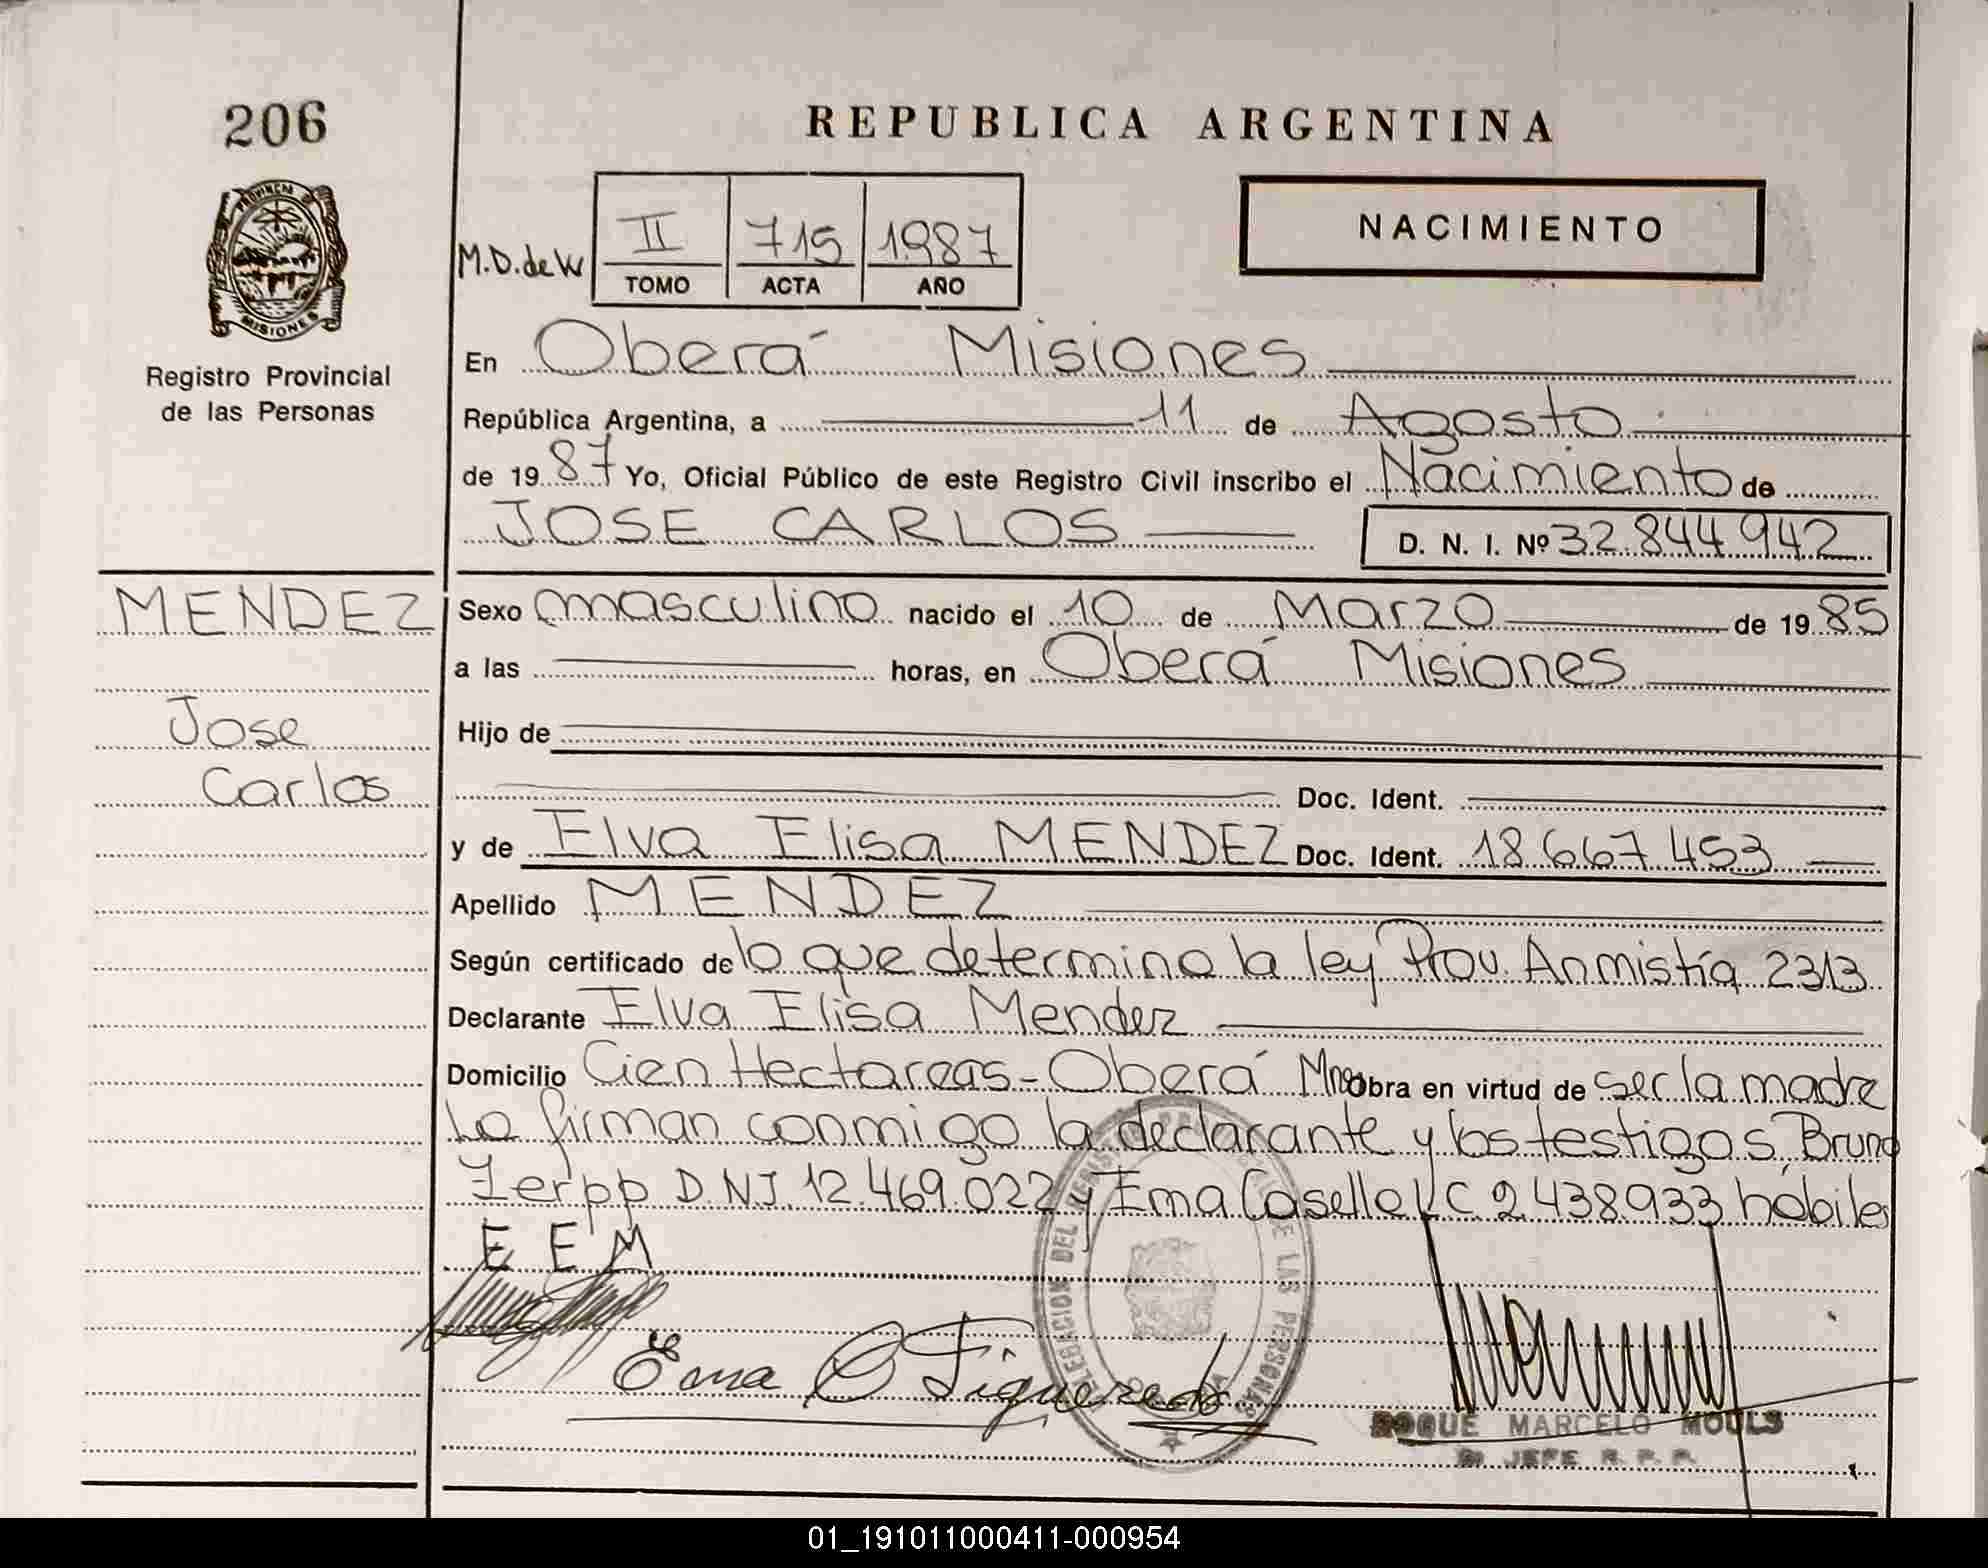 206
REPUBLICA ARGENTINA
PROVINCIA D
MISIONES
Registro Provincial
de las Personas
M.D. de W
II 715 1987
TOMO ACTA AÑO
NACIMIENTO
En Oberá Misiones
República Argentina, a 11 de Agosto
de 1987 Yo, Oficial Público de este Registro Civil inscribo el Nacimiento de
JOSE CARLOS D. N. I. Nº 32.844.942
MENDEZ
Jose
Carlos
Sexo masculino nacido el 10 de Marzo de 1985
a las horas, en Oberá Misiones
Hijo de
Doc. Ident.
y de Elva Elisa MENDEZ Doc. Ident. 18.667.453
Apellido MENDEZ
Según certificado de lo que determina la ley Prov. Anmistía 2313
Declarante Elva Elisa Mendez
Domicilio Cien Hectareas - Oberá Mnes Obra en virtud de ser la madre
Lo firman conmigo la declarante y los testigos, Bruno
Zerpp D.N.I. 12.469.022 y Ema Caselle LC 2.438.933 hábiles
E E M
Ema Figueredo
DELEGACION DEL REGISTRO PROVINCIAL DE LAS PERSONAS
ROQUE MARCELO MOULS
JEFE R. P. P.
01_191011000411-000954